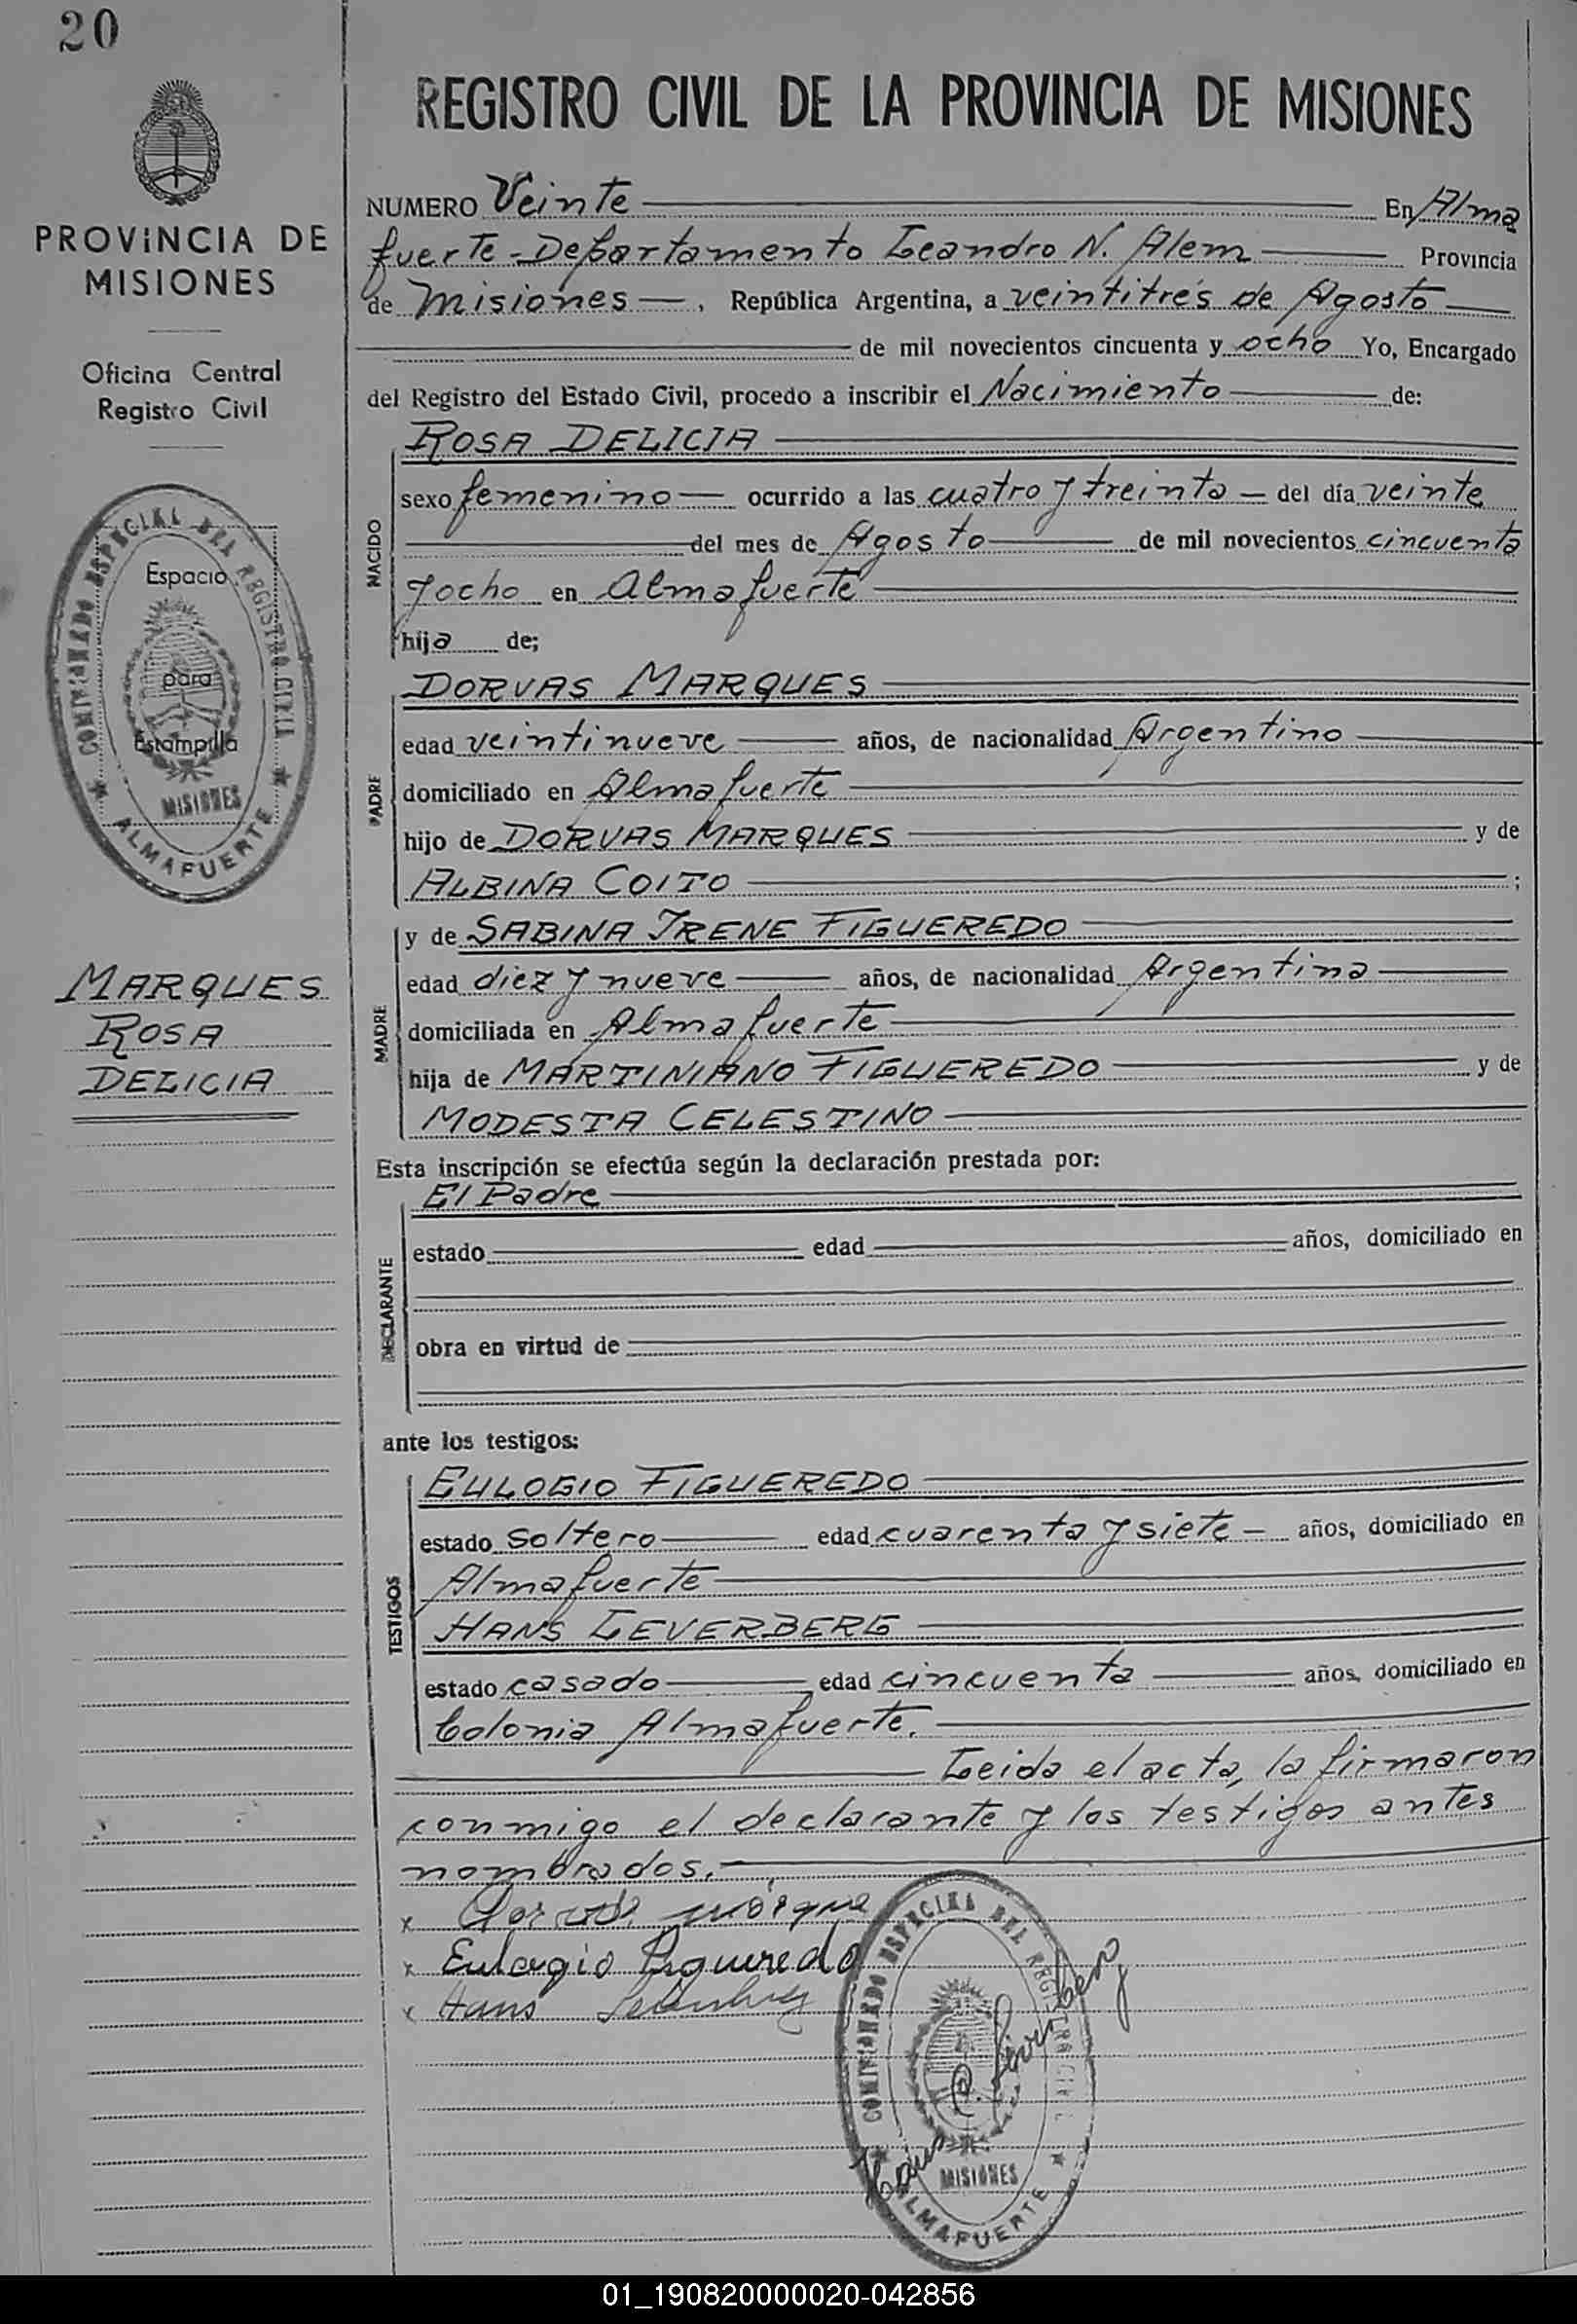 20
PROVINCIA DE
MISIONES
Oficina Central
Registro Civil
COMISIONADO ESPECIAL DEL REGISTRO CIVIL
Espacio
para
Estampilla
MISIONES
ALMAFUERTE
MARQUES
ROSA
DELICIA
REGISTRO CIVIL DE LA PROVINCIA DE MISIONES
NUMERO Veinte En Alma
fuerte - Departamento Leandro N. Alem Provincia
de Misiones, República Argentina, a veintitrés de Agosto
de mil novecientos cincuenta y ocho Yo, Encargado
del Registro del Estado Civil, procedo a inscribir el Nacimiento de:
NACIDO
ROSA DELICIA
sexo femenino ocurrido a las cuatro y treinta del día veinte
del mes de Agosto de mil novecientos cincuenta
y ocho en Almafuerte
hija de;
PADRE
DORVAS MARQUES
edad veintinueve años, de nacionalidad Argentino
domiciliado en Almafuerte
hijo de DORVAS MARQUES y de
ALBINA COITO ;
MADRE
y de SABINA IRENE FIGUEREDO
edad diez y nueve años, de nacionalidad Argentina
domiciliada en Almafuerte
hija de MARTINIANO FIGUEREDO y de
MODESTA CELESTINO
Esta inscripción se efectúa según la declaración prestada por:
DECLARANTE
El Padre
estado edad años, domiciliado en
obra en virtud de
ante los testigos:
TESTIGOS
EULOGIO FIGUEREDO
estado soltero edad cuarenta y siete años, domiciliado en
Almafuerte
HANS LEVERBERG
estado casado edad cincuenta años, domiciliado en
Colonia Almafuerte.
Leida el acta, la firmaron
conmigo el declarante y los testigos antes
nombrados.
x
x Eulogio Figueredo
x Hans
COMISIONADO ESPECIAL DEL REGISTRO CIVIL
MISIONES
ALMAFUERTE
01_190820000020-042856